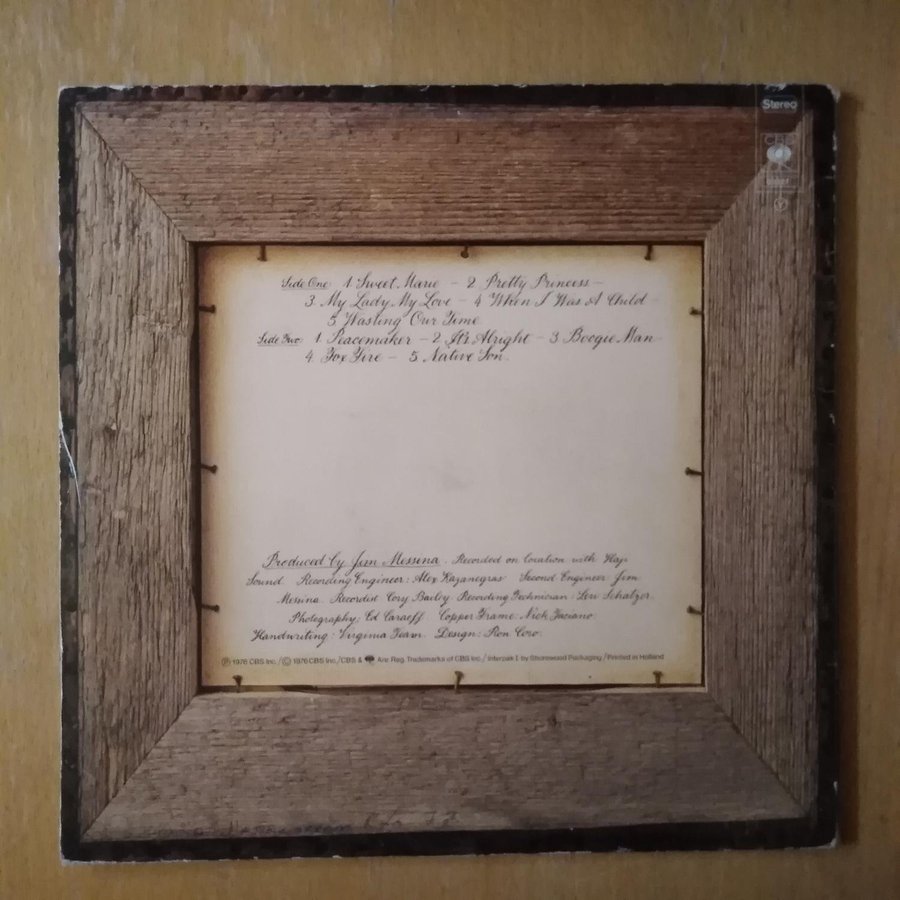 Stereo
CBS
Side One 1 Sweet Marie – 2 Pretty Princess –
3 My Lady My Love – 4 When I Was A Child –
5 Wasting Our Time
Side Two 1 Peacemaker – 2 It's Alright – 3 Boogie Man
4 Fox Fire – 5 Native Son.
Produced by Jim Messina. Recorded on location with Haji
Sound. Recording Engineer: Alex Kazanegras Second Engineer Jim
Messina. Recordist Cory Bailey Recording Technician: Lou Schatzer.
Photography: Ed Caraeff. Copper Frame: Nick Fasciano.
Handwriting: Virginia Team. Design: Ron Coro.
Ⓟ 1976 CBS Inc./© 1976 CBS Inc./CBS & Are Reg. Trademarks of CBS Inc./Interpak I by Shorewood Packaging/Printed in Holland